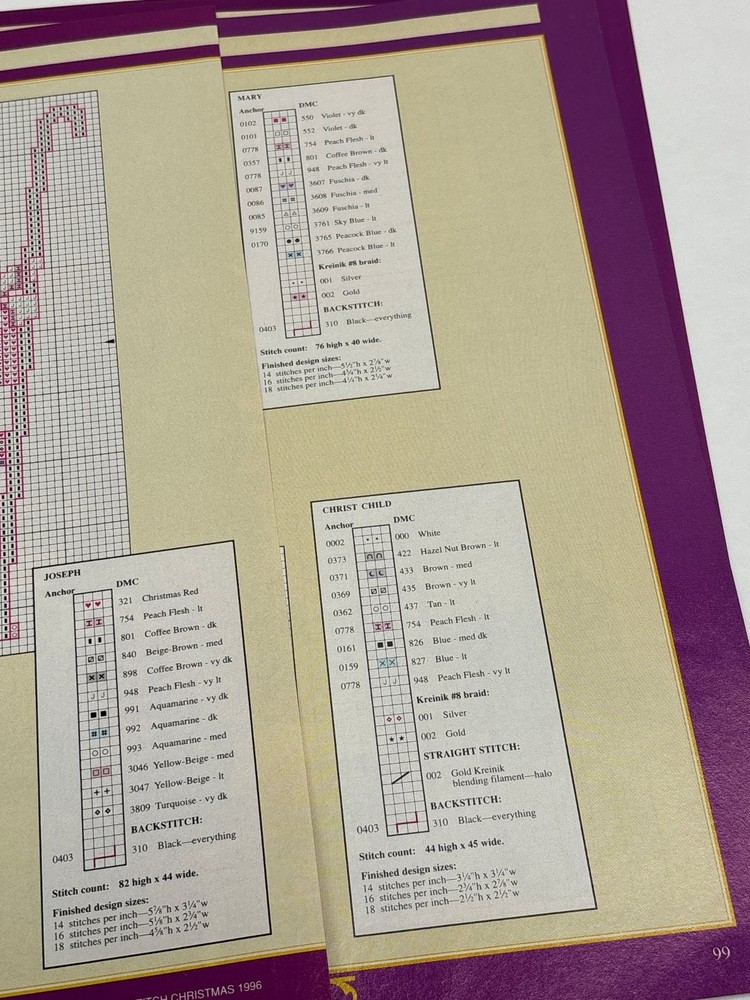 MARY
Anchor DMC
0102 550 Violet - vy dk
0101 552 Violet - dk
0778 754 Peach Flesh - lt
0357 801 Coffee Brown - dk
0778 948 Peach Flesh - vy lt
0087 3607 Fuschia - dk
0086 3608 Fuschia - med
0085 3609 Fuschia - lt
9159 3761 Sky Blue - lt
0170 3765 Peacock Blue - dk
3766 Peacock Blue - lt
Kreinik #8 braid:
001 Silver
002 Gold
BACKSTITCH:
0403 310 Black—everything
Stitch count: 76 high x 40 wide.
Finished design sizes:
14 stitches per inch—5½"h x 2⅞"w
16 stitches per inch—4¾"h x 2½"w
18 stitches per inch—4¼"h x 2¼"w
JOSEPH
Anchor DMC
321 Christmas Red
754 Peach Flesh - lt
801 Coffee Brown - dk
840 Beige-Brown - med
898 Coffee Brown - vy dk
948 Peach Flesh - vy lt
991 Aquamarine - vy dk
992 Aquamarine - dk
993 Aquamarine - med
3046 Yellow-Beige - med
3047 Yellow-Beige - lt
3809 Turquoise - vy dk
BACKSTITCH:
0403 310 Black—everything
Stitch count: 82 high x 44 wide.
Finished design sizes:
14 stitches per inch—5⅞"h x 3¼"w
16 stitches per inch—5⅛"h x 2¾"w
18 stitches per inch—4⅝"h x 2½"w
CHRIST CHILD
Anchor DMC
0002 000 White
0373 422 Hazel Nut Brown - lt
0371 433 Brown - med
0369 435 Brown - vy lt
0362 437 Tan - lt
0778 754 Peach Flesh - lt
0161 826 Blue - med dk
0159 827 Blue - lt
0778 948 Peach Flesh - vy lt
Kreinik #8 braid:
001 Silver
002 Gold
STRAIGHT STITCH:
002 Gold Kreinik
blending filament—halo
BACKSTITCH:
0403 310 Black—everything
Stitch count: 44 high x 45 wide.
Finished design sizes:
14 stitches per inch—3¼"h x 3¼"w
16 stitches per inch—2¾"h x 2⅞"w
18 stitches per inch—2½"h x 2½"w
CHRISTMAS 1996
99